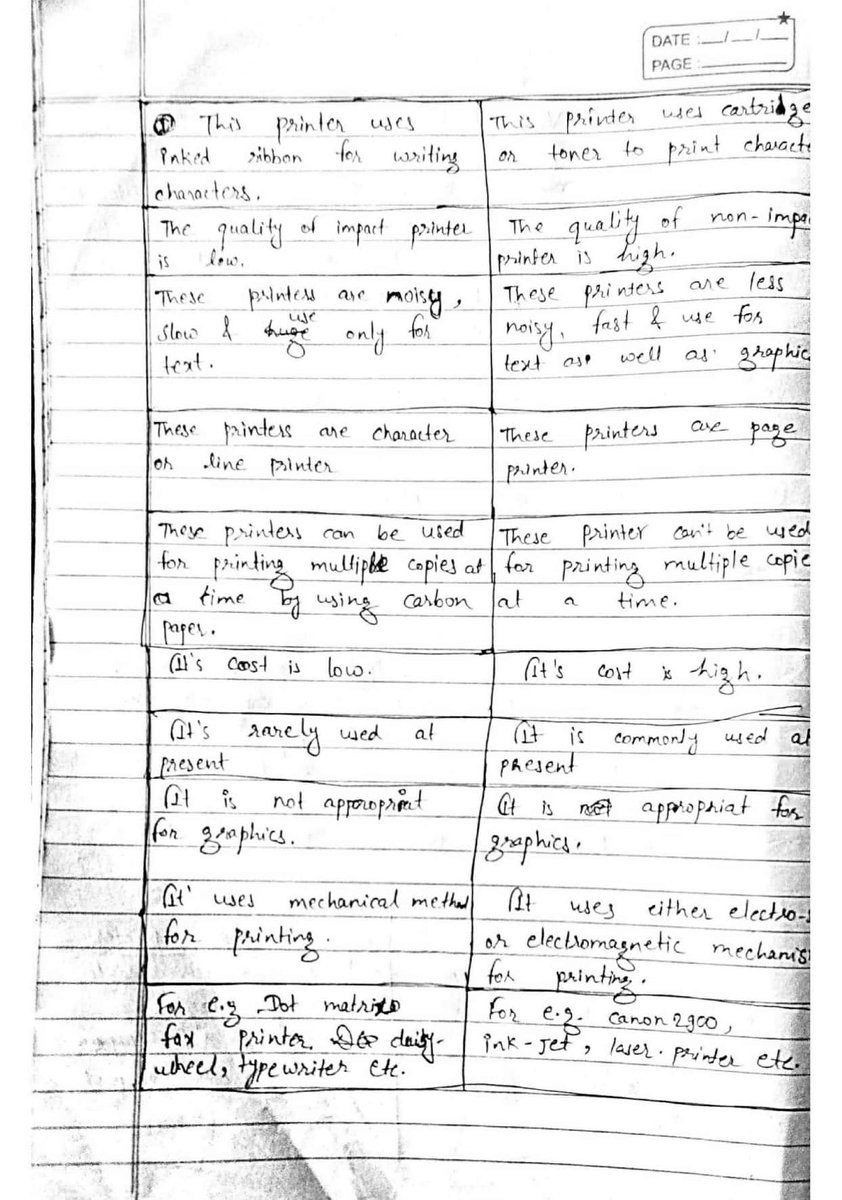 DATE :__/__/__
PAGE :______
① This printer uses
inked ribbon for writing
characters.
This printer uses cartridge
or toner to print characte
The quality of impact printer
is low.
The quality of non-impa
printer is high.
These printers are noisy,
slow & use only for
text.
These printers are less
noisy, fast & use for
text as well as graphic
These printers are character
or line printer
These printers are page
printer.
These printers can be used
for printing multiple copies at
a time by using carbon
paper.
These printer can't be used
for printing multiple copie
at a time.
It's coost is low.
It's cost is high.
It's rarely used at
present
It is commonly used at
present
It is not approprit
for graphics.
It is appropriat for
graphics.
It uses mechanical method
for printing.
It uses either electro-
or electromagnetic mechanis
for printing.
For e.g. Dot matrix
fax printer. daisy-
wheel, typewriter etc.
For e.g. canon 2900,
ink-jet, laser printer etc.